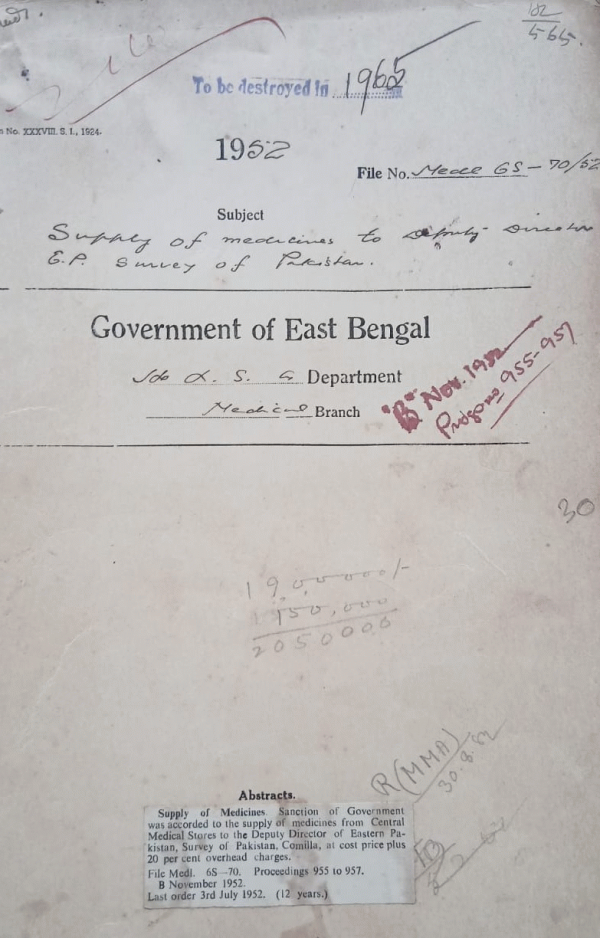 102
565.
To be destroyed in 1965
No. XXXVIII. S. I., 1924.
1952
File No. Medl 6S - 70/52
Subject
Supply of medicines to Deputy Director
E.P. Survey of Pakistan.
Government of East Bengal
L. S. G Department
Medical Branch
"B" Nov. 1952
Prdgs no 955-957
30
1900000/-
150,000
2050000
R(MMA)
30.8.52
Abstracts.
Supply of Medicines. Sanction of Government
was accorded to the supply of medicines from Central
Medical Stores to the Deputy Director of Eastern Pa-
kistan, Survey of Pakistan, Comilla, at cost price plus
20 per cent overhead charges.
File Medl. 6S—70. Proceedings 955 to 957.
B November 1952.
Last order 3rd July 1952. (12 years.)